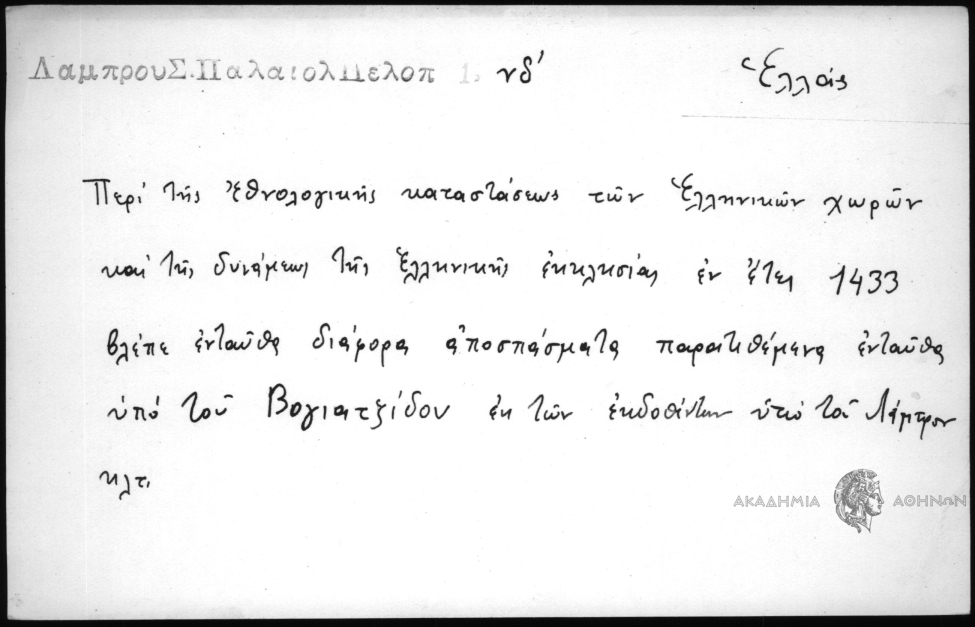 ΛαμπρουΣ.ΠαλαιολΠελοπ 1. νδ' Ἑλλάς
Περὶ τῆς ἐθνολογικῆς καταστάσεως τῶν Ἑλληνικῶν χωρῶν
καὶ τῆς δυνάμεως τῆς Ἑλληνικῆς ἐκκλησίας ἐν ἔτει 1433
βλέπε ἐνταῦθα διάφορα ἀποσπάσματα παρατιθέμενα ἐνταῦθα
ὑπὸ τοῦ Βογιατζίδου ἐκ τῶν ἐκδοθέντων ὑπὸ τοῦ Λάμπρου
κλπ.
ΑΚΑΔΗΜΙΑ ΑΘΗΝΩΝ